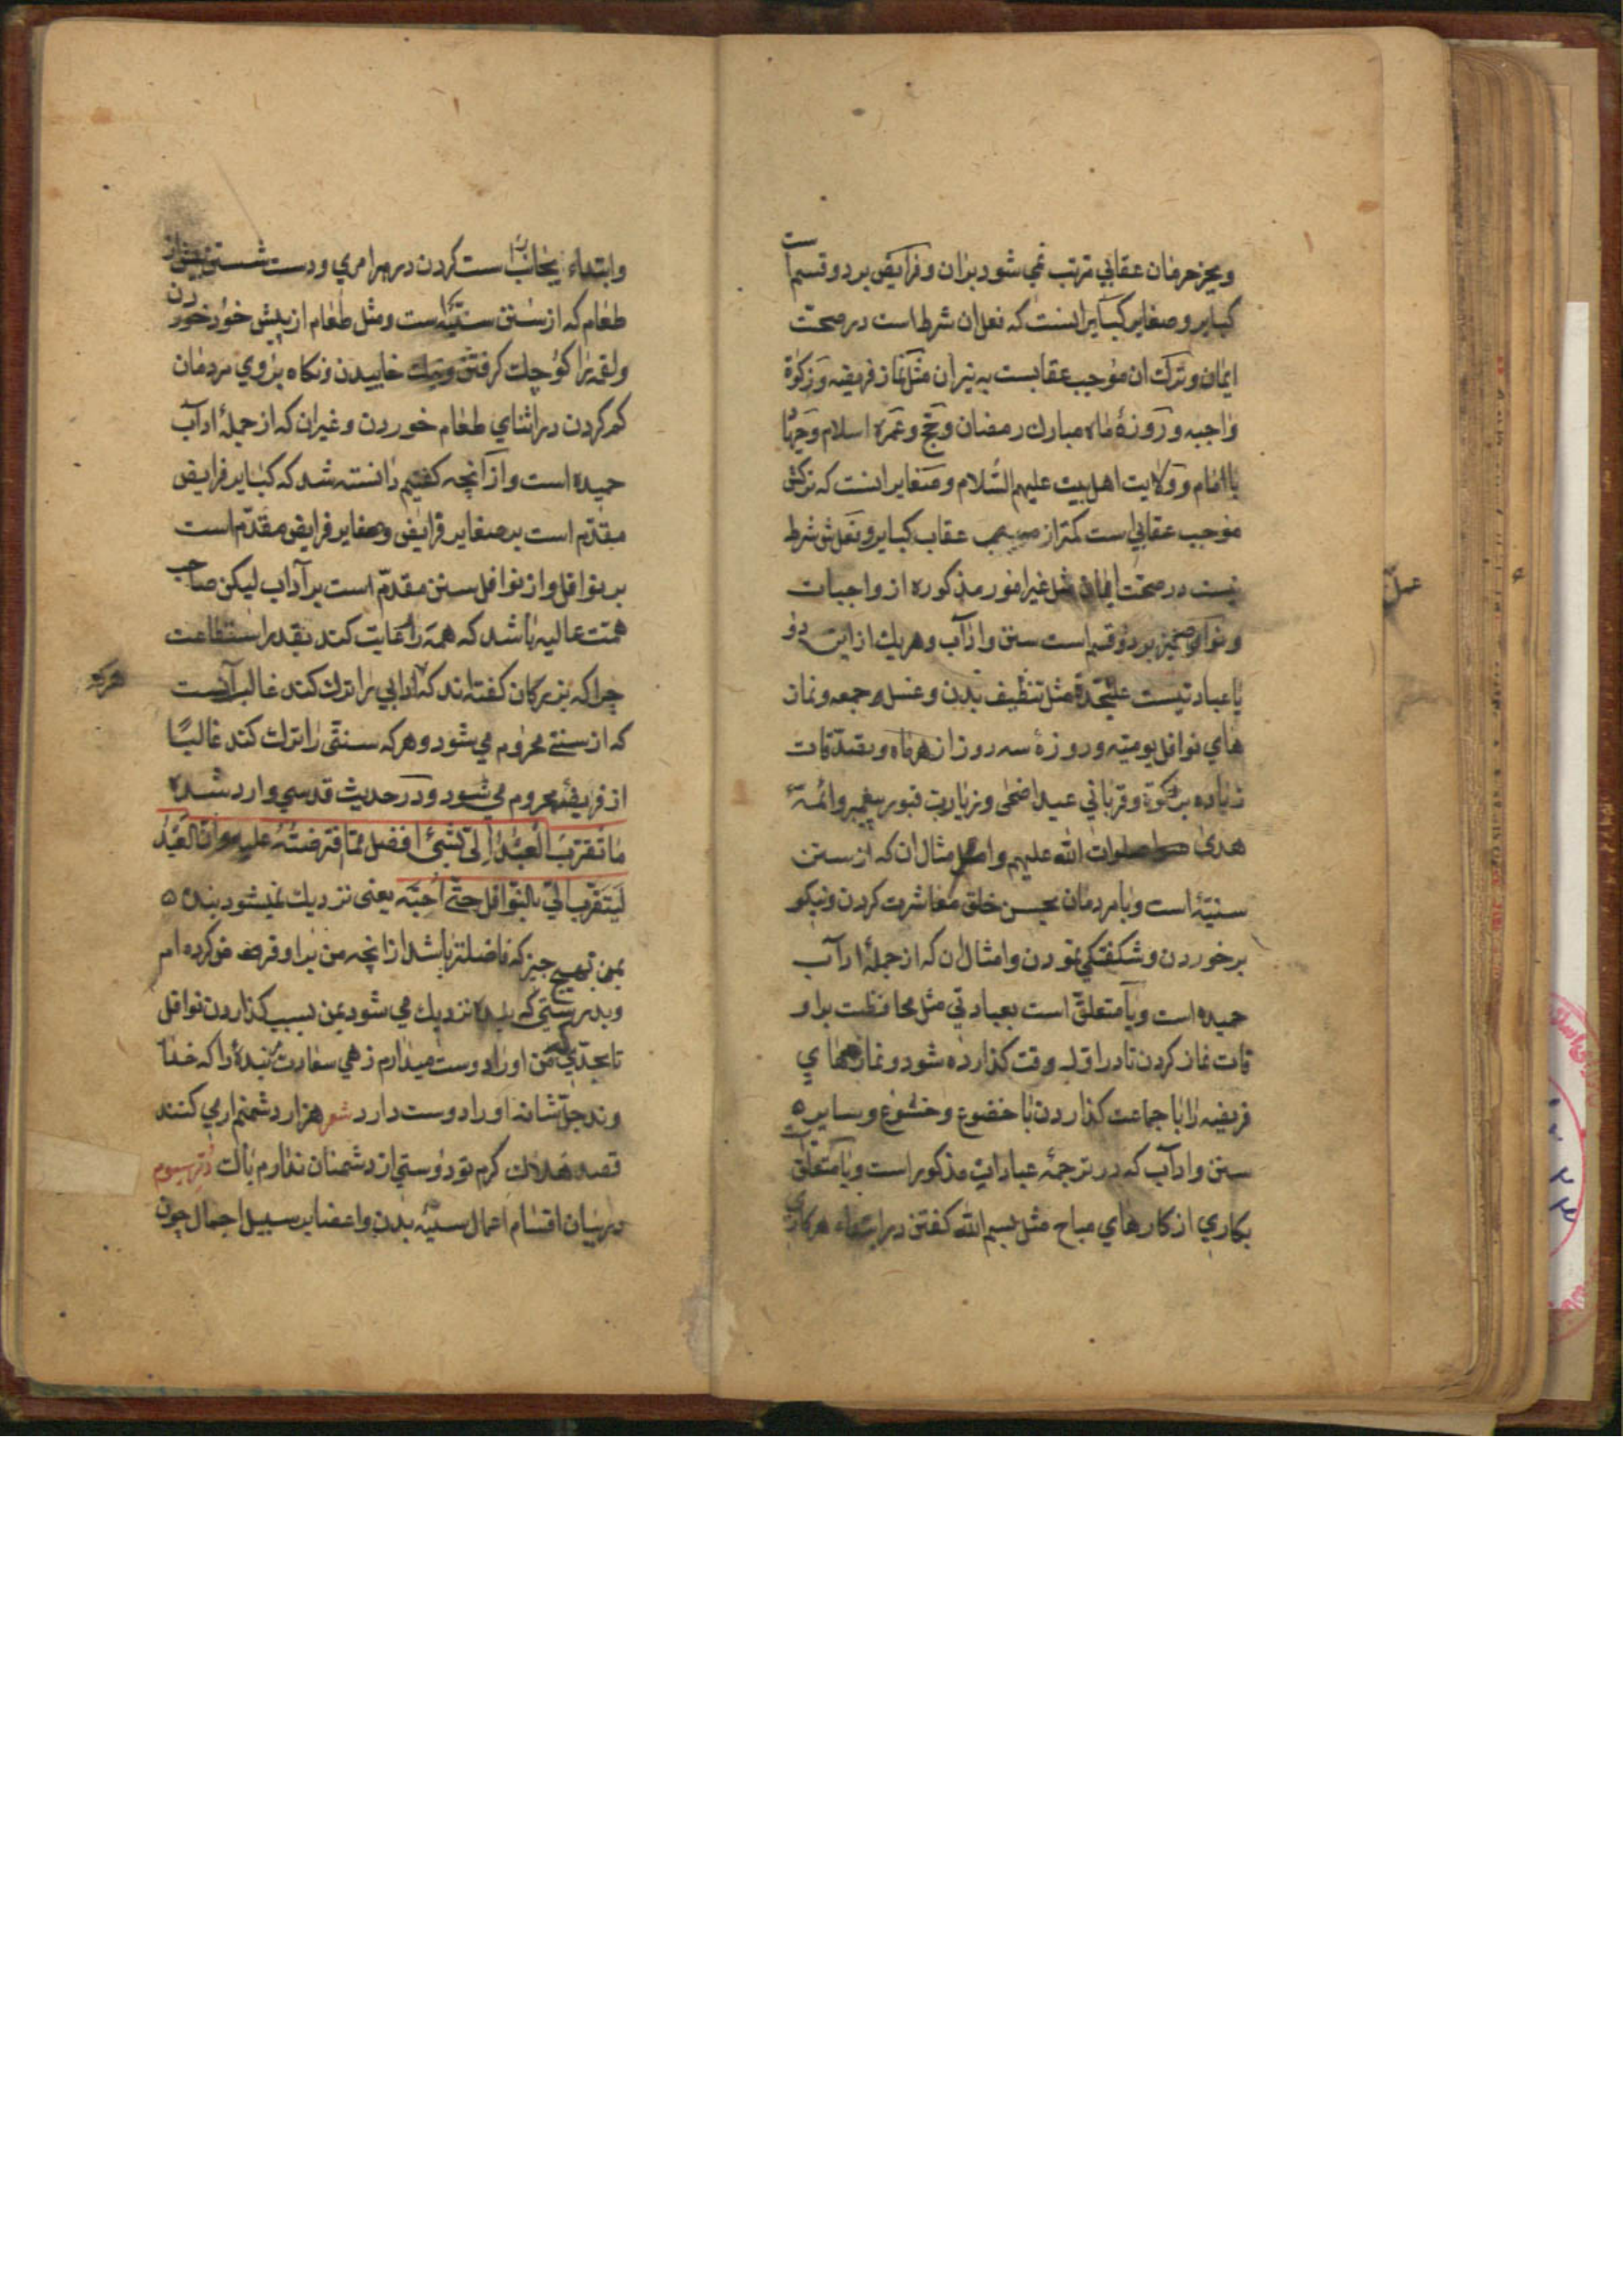 وبجز حرمان عقابي مترتب نمي شود بران وفرايض بر دو قسم است
كباير وصغاير كباير انست كه فعل ان شرط است در صحت
ايمان وترك ان موجب عقابست به نيران مثل نماز فريضه وزكوة
واجبه وروزهٔ ماه مبارك رمضان وحج وعمره اسلام وجهاد
با امام وولايت اهل بيت عليهم السلام وصغاير انست كه تركش
موجب عقابي است كمتراز عقاب كباير وفعلش شرط
نيست در صحت ايمان مثل غير امور مذكوره از واجبات
ونوافل نيز بر دو قسم است سنن وآداب وهريك از اين دو
يا عبادتيست عليحده مثل تنظيف بدن وغسل جمعه ونماز
هاي نوافل يوميه وروزهٔ سه روز از هر ماه وتصدقات
زياده بر زكوة وقرباني عيد اضحى وزيارت قبور پيغمبر وائمهٔ
هدى صلوات الله عليهم وامثال ان كه از سنن
سنيّه است وبا مردمان بحسن خلق معاشرت كردن ونيكو
برخوردن وشكفتكي نمودن وامثال ان كه از جملهٔ آداب
حميده است ويا متعلق است بعبادتي مثل محافظت بر او
قات نماز كردن تا در اول وقت كذارده شود ونمازهاي
فريضه را با جماعت كذاردن با خضوع وخشوع وساير
سنن وآداب كه در ترجمهٔ عبادات مذكور است ويا متعلق است
بكاري از كارهاي مباح مثل بسم الله كفتن در ابتداء هر كاري
عمل
وابتداء بجانب راست كردن در هر امري ودست شستن پيش از
طعام كه از سنن سنيّه است ومثل طعام از پيش خود خوردن
ولقمه را كوچك كرفتن ونيك خاييدن ونكاه بروي مردمان
كم كردن در اثناي طعام خوردن وغير ان كه از جملهٔ آداب
حميده است واز آنچه كفتيم دانسته شد كه كباير فرايض
مقدّم است بر صغاير فرايض وصغاير فرايض مقدّم است
بر نوافل واز نوافل سنن مقدّم است بر آداب ليكن صاحب
همت عاليه باشد كه همه را رعايت كند بقدر استطاعت
چرا كه بزركان كفته اند كه ادبي را ترك كند غالب آنست
كه از سنتي محروم مي شود وهركه سنتي را ترك كند غالبًا
از فريضه محروم مي شود ودر حديث قدسي وارد شده
ما تقرّب العبد الى بشئ افضل مما افترضته عليه وان العبد
ليتقرب الي بالنوافل حتي احبّه يعنى نزديك نميشود بنده
بمن بهيچ چيز كه فاضلتر باشد از انچه من بر او فرض كرده ام
وبدرستي كه بنده نزديك مي شود بمن بسبب كذاردن نوافل
تا بحدّي كه من او را دوست ميدارم زهي سعادت بنده را كه خدا
وند جلّ شانه او را دوست دارد شعر هزار دشمنم ار مي كنند
قصد هلاك كرم تو دوستي از دشمنان ندارم باك دُرّ سيوم
در بيان اقسام اعمال سيّئه بدن واعضا بر سبيل اجمال چون
هركه